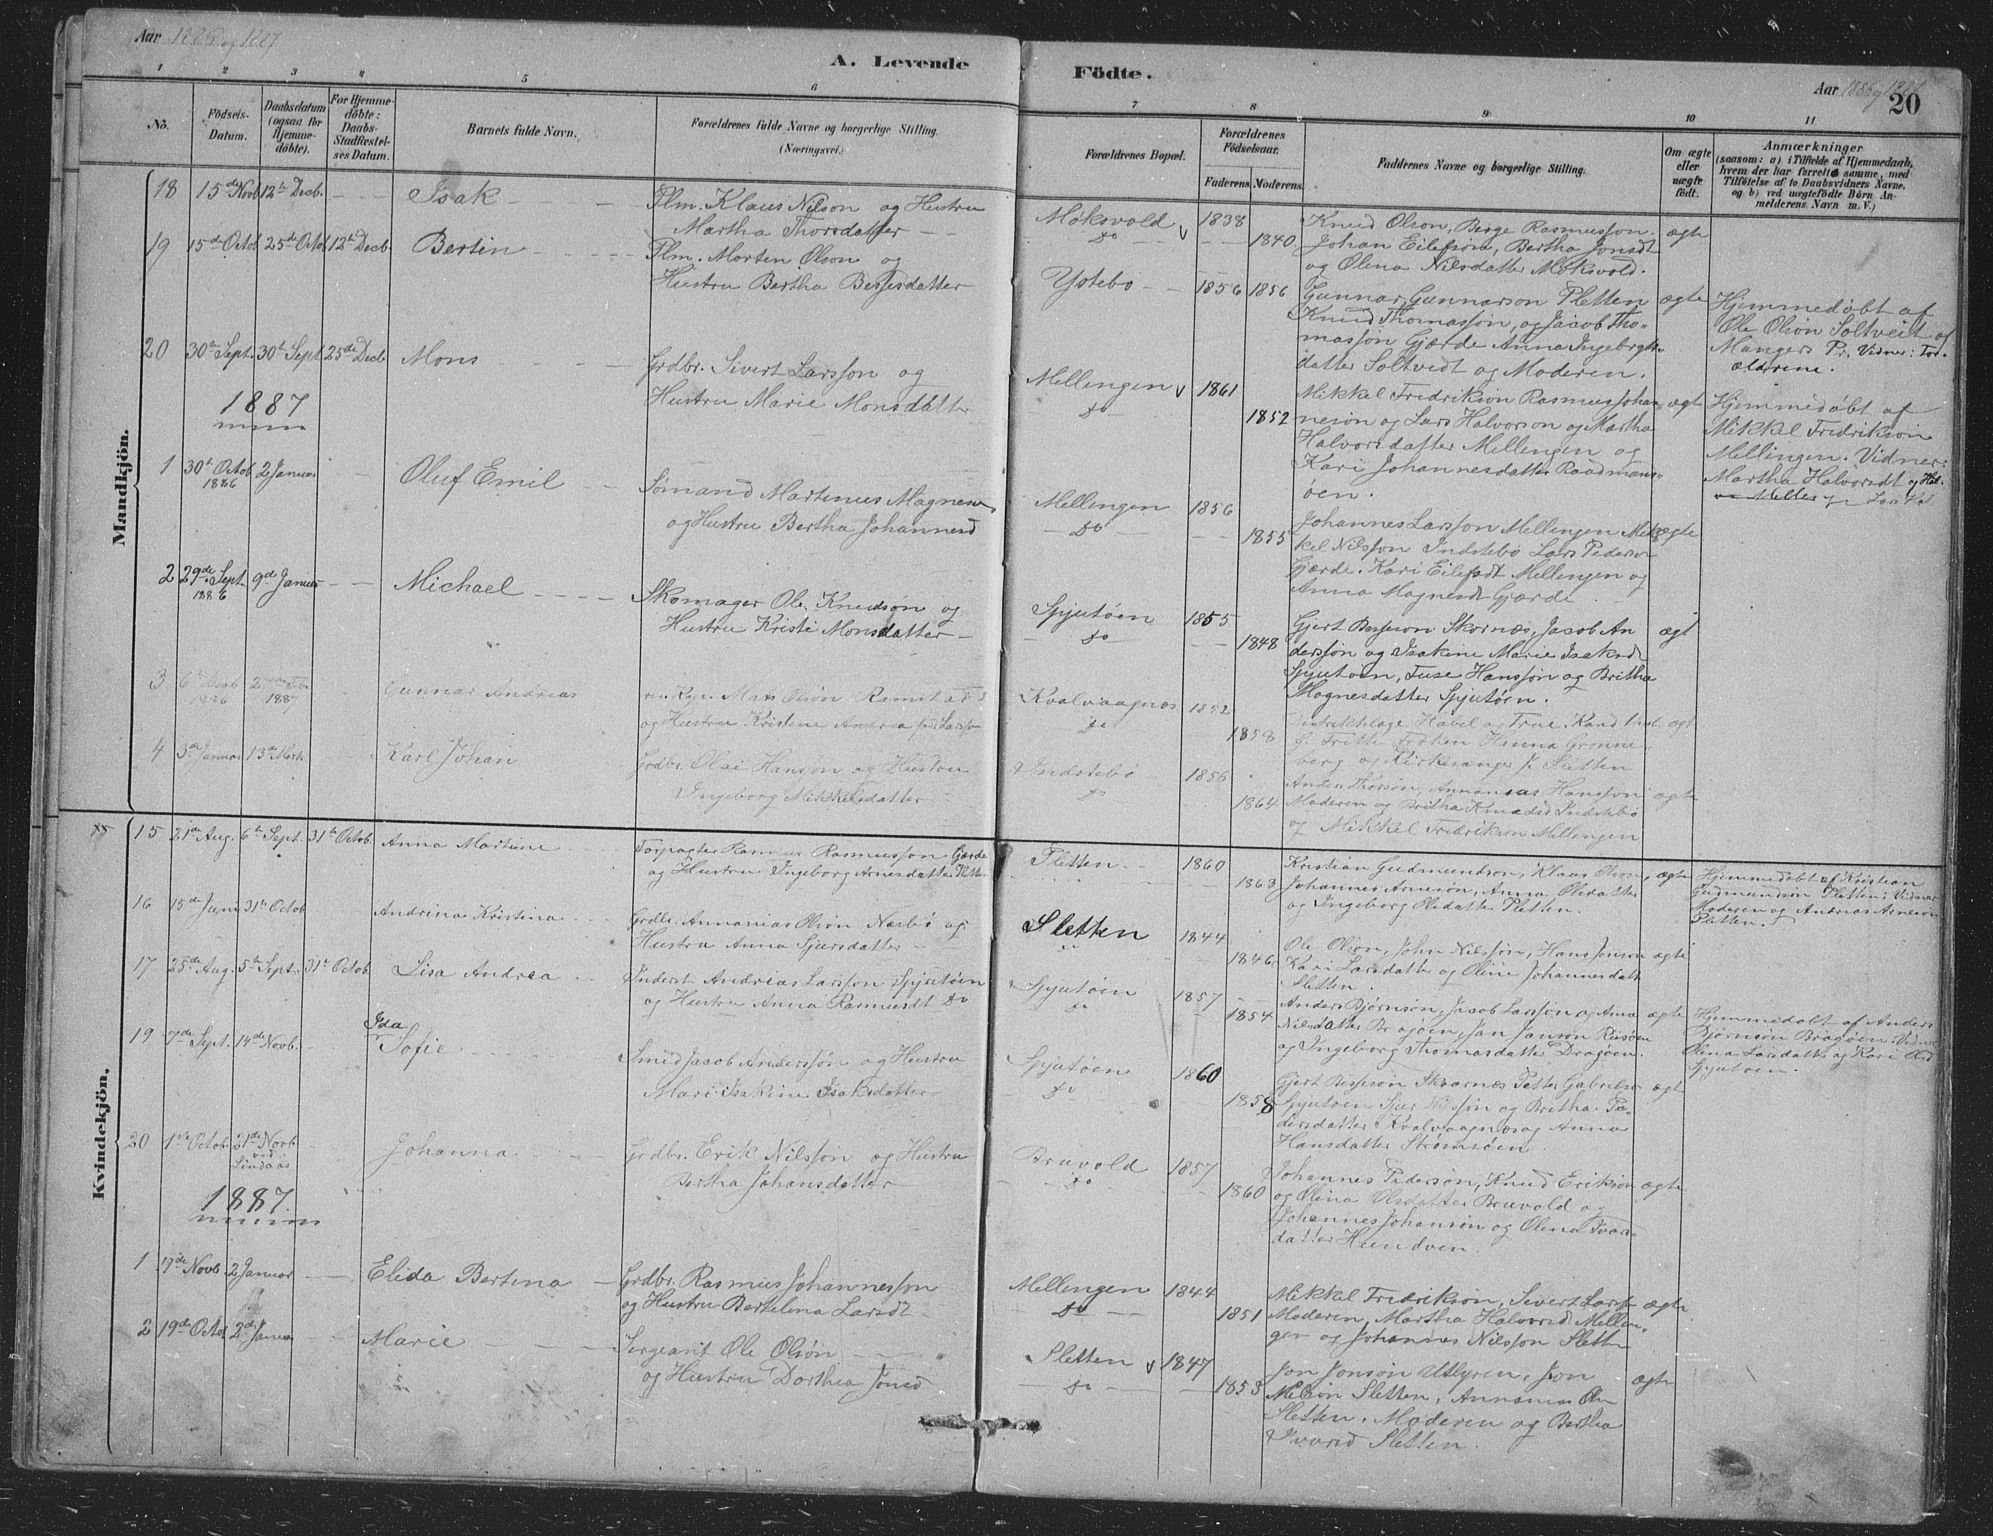 Aar 1886 og 1887
A. Levende Födte.
Aar 1886 og 1887
20
1 2 3 4 5 6 7 8 9 10 11
No.
Födsels-Datum.
Daabsdatum (ogsaa for Hjemme-döbte).
For Hjemme-döbte: Daabs-Stadfæstel-ses Datum.
Barnets fulde Navn.
Forældrenes fulde Navne og borgerlige Stilling. (Næringsvei.)
Forældrenes Bopæl.
Forældrenes Födselsaar.
Faderens. Moderens.
Faddernes Navne og borgerlige Stilling.
Om ægte eller uægte födt.
Anmærkninger
(saasom: a) i Tilfælde af Hjemmedaab, hvem der har forrettet samme, med Tilföielse af to Daabsvidners Navne, og b) ved uægtefödte Börn Anmelderens Navn m. V.)
Mandkjön.
18 15de Novb 12te Decb. Isak
Plm. Klaus Nilson og Hustru
Martha Thorsdatter
Møksvold 1838
do 1840
Knud Olson, Berge Rasmusson
Johan Eilefson, Bertha Jonsdt
og Olena Nilsdatter Møksvold.
ægte
19 15de Octob 25de Octob 12te Decb Bertin
Plm. Morten Olson og
Hustru Bertha Bessesdatter
Ystebo 1856 1856
Gunnar Gunnarson Sletten
Knud Thomasson, og Jacob Tho-
masson Gjærde Anna Ingebrigts-
datter Soltvedt og Moderen.
ægte
Hjemmedøbt af
Ole Olson Soltveit af
Mangers Pr. Vidner: For-
ældrene.
20 30te Sept. 30te Sept 25de Decb Mons
Grdbr. Sivert Larsson og
Hustru Marie Monsdatter
Mellingen 1861
do 1852
Mikkel Fredrikson Rasmus Johan-
neson og Lars Halvorson og Martha
Halvorsdatter Mellingen og
Kari Johannesdatter Raadmans-
øen.
ægte
Hjemmedøbt af
Mikkel Fredrikson
Mellingen. Vidner:
Martha Halvorsdt og
1887
1 30te Octob 1886 2 Januar Oluf Emil
Sømand Martinus Magnes
og Hustru Bertha Johannesd
Mellingen 1856
do 1855
Johannes Larsson Mellingen Mik-
kel Nilsson Indstebø Lars Pederson
Gjærde. Kari Eilefsdt Mellingen og
Anna Magnesdt Gjærde
ægte
2 29de Sept. 1886 9de Januar Michael
Skomager Ole Knudsøn og
Hustru Kristi Monsdatter
Spjutøen 1855
do 1848
Gjert Besseson Skornæs, Jacob An
dersson og Isakine Marie Isaksdt
Spjutøen, Tuse Hansson og Britha
Magnesdatter Spjutøen.
ægt
3 6te Decb 1886 2den Feb 1887 Gunnar Andreas
Mats Olsøn Ramstad
og Hustru Kristine Andrea
Kvalvaagnæs 1852
do 1858
Distriktslæge Habel og Frue. Kand
Frøken Hanna Grønne-
berg og Kirkesanger J. Sletten
ægt
4 3de Januar 13de Marts Karl Johan
Grdbr. Olai Hansøn og Hustru
Ingeborg Mikkelsdatter
Indstebø 1856
do 1864
Anders Thorson, Annanias Hansson
Moderen og Britha Knudsd Indstebø
og Mikkel Fredrikson Mellingen
ægte
Kvindekjön.
15 21de Aug. 6te Sept. 31te Octob. Anna Martine
Forpagter Rasmus Rasmusson Gjærde
og Hustru Ingeborg Arnesdatter Slette
Sletten 1860
1863
Kristian Gudmundson, Klaus Olson,
Johannes Arneson, Anna Olsdatter
og Ingeborg Olsdatter Sletten.
ægte
Hjemmedøbt af Kristian
Gudmundson Sletten; Vidner
Moderen og Andreas Arneson
Sletten.
16 15de Juni 31te Octob Andrina Kristina
Grdbr. Annanias Olson Næsbø og
Hustru Anna Sjursdatter
Sletten 1844
1846
Ole Olson, John Nilsson, Hans Jonson
Kari Larsdatter og Oline Johannesdatt
Sletten.
ægte
17 25de Aug. 5te Sept. 31te Octob. Lisa Andrea
Inderst Andreas Larsson Spjutøen
og Hustru Anna Rasmusdt do
Spjutøen 1857
do 1854
Anders Bjørnson, Jacob Larsson og Anna
Nilsdatter Bragøen, Jan Janson Risøen
og Ingeborg Thomasdatter Dragøen.
ægte
Hjemmedøbt af Anders
Bjørnson Bragøen, Vidner
Olina Larsdatter og Kari Olsd
Spjutøen.
19 7de Sept. 14de Novb. Ida Sofie
Smed Jacob Anderssøn og Hustru
Mari Isakine Isaksdatter
Spjutøen 1860
do 1858
Gjert Besseson Skvarnæs Petter Gabrielso
Spjutøen Sjur Nilsson og Britha Pe-
dersdatter Kvalvaagnæs og Anna
Hansdatter Strømsøen.
ægt
20 1ste Octob. 21de Novb. ved Lindaas Johanna
Grdbr. Erik Nilsson og Hustru
Bertha Johansdatter
Bruvold 1857
do 1860
Johannes Pederson, Knud Erikson
og Olina Olsdatter Bruvold og
Johannes Johanson og Olena Ivars-
datter Hundven.
ægte
1887.
1 19de Novb. 2 Januar Elida Bertina
Grdbr. Rasmus Johannesson
og Hustru Bertelina Larsdt
Mellingen 1844
do 1851
Mikkel Fredrikson, Sivert Larss
Moderen, Martha Halvorsd Mellin-
gen og Johannes Nilsson Slette
ægte
2 19de Octob 2de Januar Marie
Sergeant Ole Olsøn
og Hustru Dorthea Jonsd
Sletten 1847
do 1853
Jon Jonson Utlyren, Jon
Nilson Sletten, Annanias Ols
Sletten. Moderen og Bertha
Ivarsd Sletten.
ægte